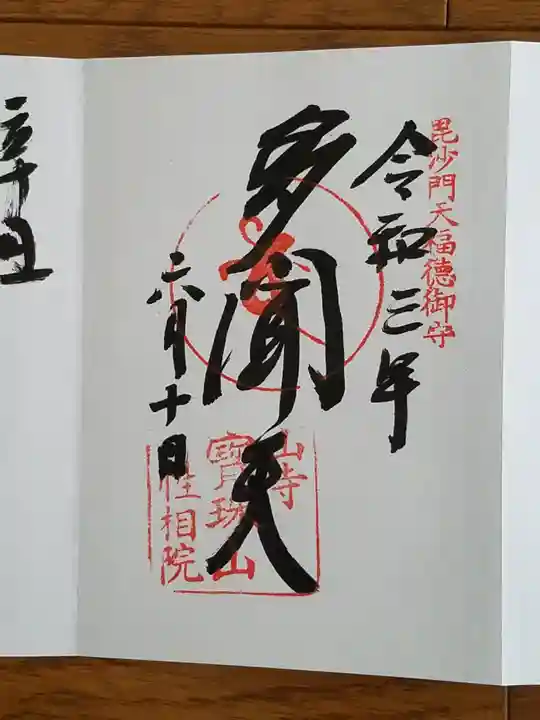 毘沙門天福徳御守
令和三年
多聞天
六月十日
山寺
寳珠山
性相院